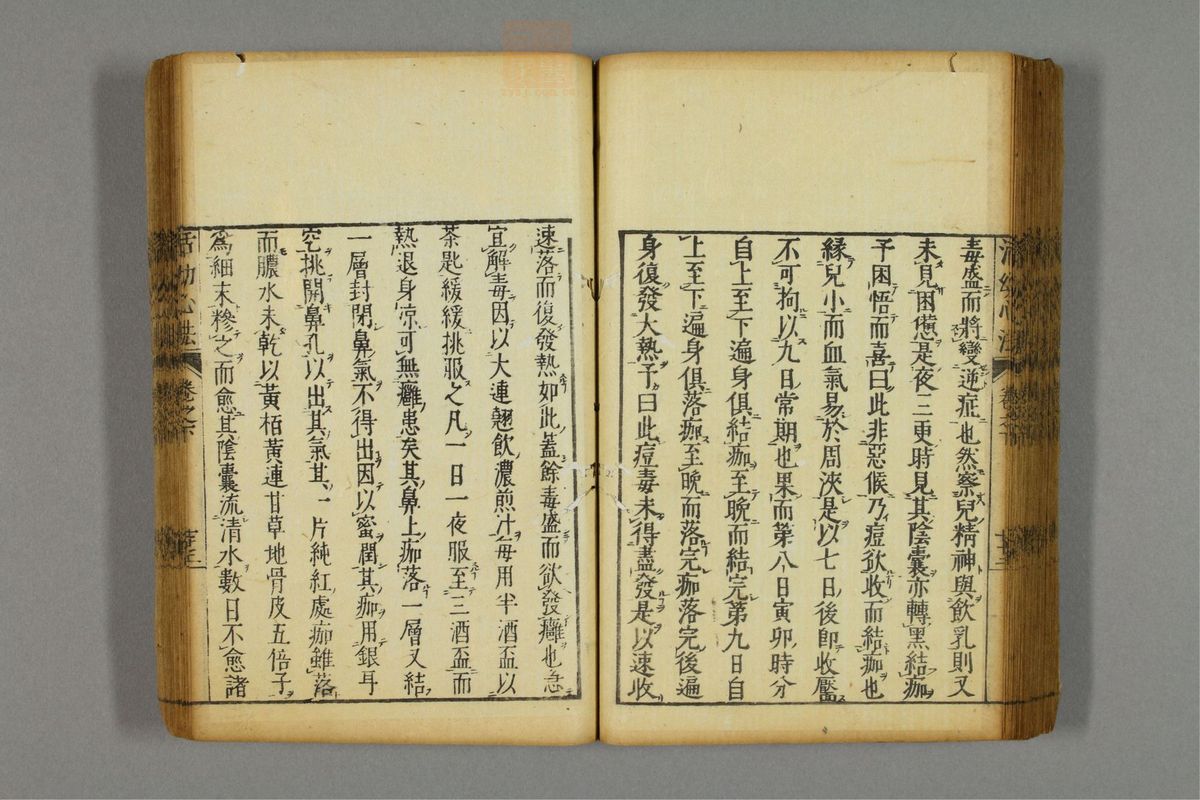 毒盛而將變逆症也然察兒精神與飲乳則又
未見困憊是夜三更時見其陰囊亦轉黑結痂
予困悟而喜曰此非惡候乃痘欲收而結痂也
緣兒小而血氣易於周浹是以七日後即收靨
不可拘以九日常期也果而第八日寅卯時分
自上至下遍身俱結痂至晚而結完第九日自
上至下遍身俱落痂至晚而落完痂落完後遍
身復發大熱予曰此痘毒未得盡發是以速收
速落而復發熱如此蓋餘毒盛而欲發癰也急
宜解毒因以大連翹飲濃煎汁每用半酒盃以
茶匙緩緩挑服之凡一日一夜服至三酒盃而
熱退身涼可無癰患矣其鼻上痂落一層又結
一層封閉鼻氣不得出因以蜜潤其痂用銀耳
空挑開鼻孔以出其氣其一片純紅處痂雖落
而膿水未乾以黃栢黃連甘草地骨皮五倍子
為細末糝之而愈其陰囊流清水數日不愈諸
活幼心法
卷之六